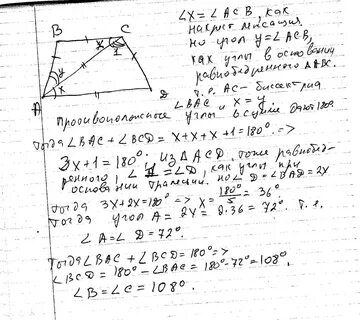 B
C
x
1
y
x
A
D
∠x = ∠ACB, как
накрест лежащие.
но угол y = ∠ACB,
как углы в основании
равнобедренного
т.е. AC – биссектриса
∠BAC и x = y.
Противоположные углы в сумме дают 180.
Тогда ∠BAC + ∠BCD = x + x + x + 1 = 180°. =>
3x + 1 = 180°. Из △ACD, тоже равнобед-
ренного, ∠ = ∠D, как углы при
основании трапеции. но ∠D = ∠BAD = 2x
Тогда 3x + 2x = 180° => x = 180°/5 = 36°
Тогда угол A = 2x = 2·36 = 72°. т.е.
∠A = ∠D = 72°.
Тогда ∠BAC + ∠BCD = 180° =>
∠BCD = 180° – ∠BAC = 180° – 72° = 108°.
∠B = ∠C = 108°.